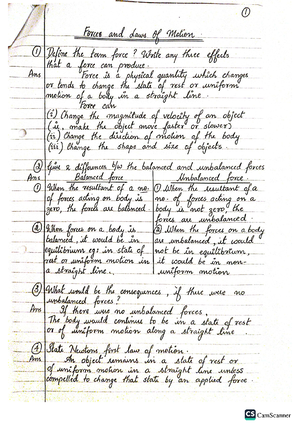 ①
Forces and Laws Of Motion
① Define the term force? Write any three effects
that a force can produce.
Ans Force is a physical quantity which changes
or tends to change the state of rest or uniform
motion of a body in a straight line.
Force can
(i) Change the magnitude of velocity of an object
(ie, make the object move faster or slower)
(ii) Change the direction of motion of the body
(iii) Change the shape and size of objects.
② Give 2 differences b/w the balanced and unbalanced forces
Ans Balanced force Unbalanced force
① When the resultant of a no. ① When the resultant of a
of forces acting on body is no. of forces acting on a
zero, the forces are balanced body is not zero, the
forces are unbalanced
② When forces on a body is ② When the forces on a body
balanced, it would be in are unbalanced, it would
equilibrium eg: in state of not be in equilibrium,
rest or uniform motion in it would be in non-
a straight line. uniform motion
③ What would be the consequences, if there were no
unbalanced forces?
Ans If there were no unbalanced forces,
The body would continue to be in a state of rest
or of uniform motion along a straight line
④ State Newtons first law of motion.
Ans An object remains in a state of rest or
of uniform motion in a straight line unless
compelled to change that state by an applied force.
CS CamScanner